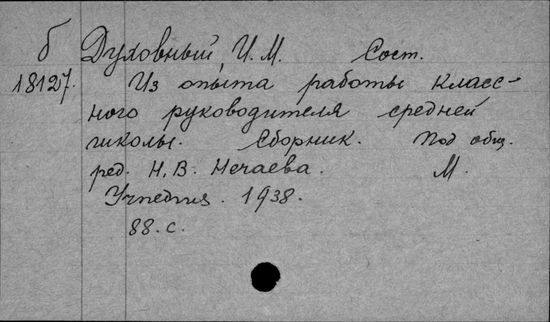 б Духовный, И. М. Сост.
18127. Из опыта работы класс-
ного руководителя средней
школы. Сборник. Под общ.
ред. Н. В. Нечаева. М.
Учпедгиз. 1938.
88. с.